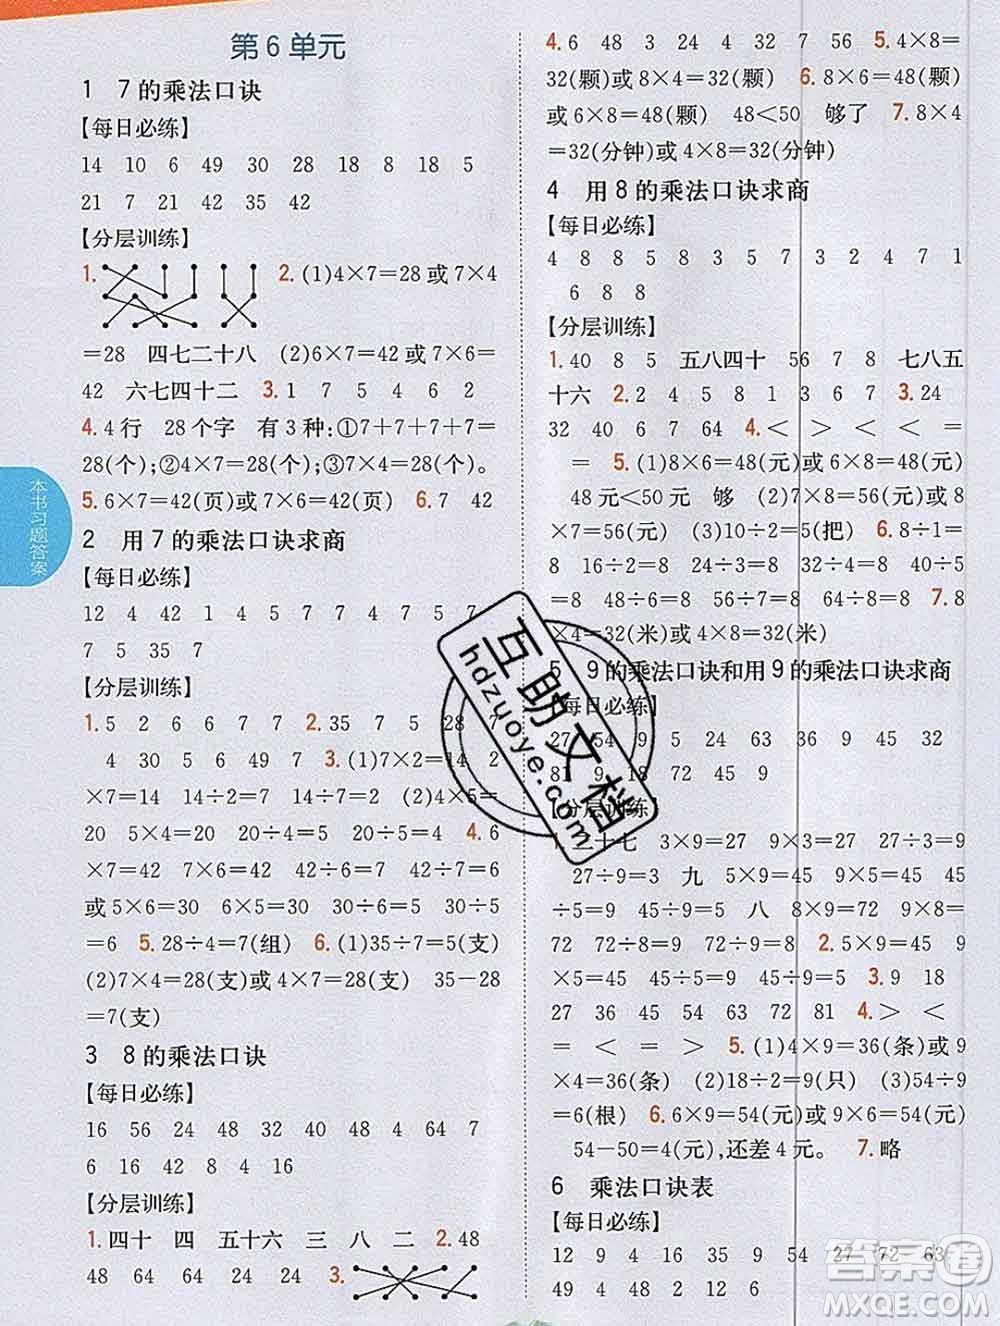 第6单元
1 7的乘法口诀
【每日必练】
14 10 6 49 30 28 18 8 18 5
21 7 21 42 35 42
【分层训练】
1. 2.(1)4×7=28或7×4
=28 四七二十八 (2)6×7=42或7×6=
42 六七四十二 3.1 7 5 4 6 2
4.4行 28个字 有3种:①7+7+7+7=
28(个);②4×7=28(个);③7×4=28(个)。
5.6×7=42(页)或7×6=42(页) 6.7 42
2 用7的乘法口诀求商
【每日必练】
12 4 42 1 4 5 7 7 4 7 5 7
7 5 35 7
【分层训练】
1.5 2 6 6 7 7 2.35 7 5 28 7
4 30 5 6 49 7 3.(1)7×2=14 2
×7=14 14÷2=7 14÷7=2 (2)4×5=
20 5×4=20 20÷4=5 20÷5=4 4.6
×7=42 7×6=42 42÷6=7 42÷7=6
或5×6=30 6×5=30 30÷6=5 30÷5
=6 5.28÷4=7(组) 6.(1)35÷7=5(支)
(2)7×4=28(支)或4×7=28(支) 35-28
=7(支)
3 8的乘法口诀
【每日必练】
16 56 24 48 32 40 48 4 64 7
6 16 42 8 4 16
【分层训练】
1.四十 四 五十六 三 八 二 2.48
48 64 64 24 24 3.
4.6 48 3 24 4 32 7 56 5.4×8=
32(颗)或8×4=32(颗) 6.8×6=48(颗)
或6×8=48(颗) 48<50 够了 7.8×4
=32(分钟)或4×8=32(分钟)
4 用8的乘法口诀求商
【每日必练】
4 8 8 5 8 3 5 7 3 2 4 7 1
6 8 8
【分层训练】
1.40 8 5 五八四十 56 7 8 七八五
十六 2.2 4 5 8 1 3 6 7 3.24
32 40 6 7 64 4.< > < < =
= 5.(1)8×6=48(元)或6×8=48(元)
48元<50元 够 (2)7×8=56(元)或8×7
=56(元) (3)10÷2=5(把) 6.8÷1=
8 16÷2=8 24÷3=8 32÷4=8 40÷5
=8 48÷6=8 56÷7=8 64÷8=8 7.8
×4=32(米)或4×8=32(米)
5 9的乘法口诀和用9的乘法口诀求商
【每日必练】
27 54 9 5 24 63 36 9 45 32
81 9 18 72 45 9
【分层训练】
二十七 3×9=27 9×3=27 27÷3=9
27÷9=3 九 5×9=45 9×5=45 45
÷5=9 45÷9=5 八 8×9=72 9×8=
72 72÷8=9 72÷9=8 2.5×9=45 9
×5=45 45÷5=9 45÷9=5 3.9 18
27 36 45 54 63 72 81 4.> < <
= < = > 5.(1)4×9=36(条)或9
×4=36(条) (2)18÷2=9(只) (3)54÷9
=6(根) 6.6×9=54(元)或9×6=54(元)
54-50=4(元),还差4元。 7.略
6 乘法口诀表
【每日必练】
12 9 4 16 35 9 54 27 72 63
49 4 48 2 12 6
本书习题答案
互助文档
hdzuoye.com
答案圈
MXQE.COM